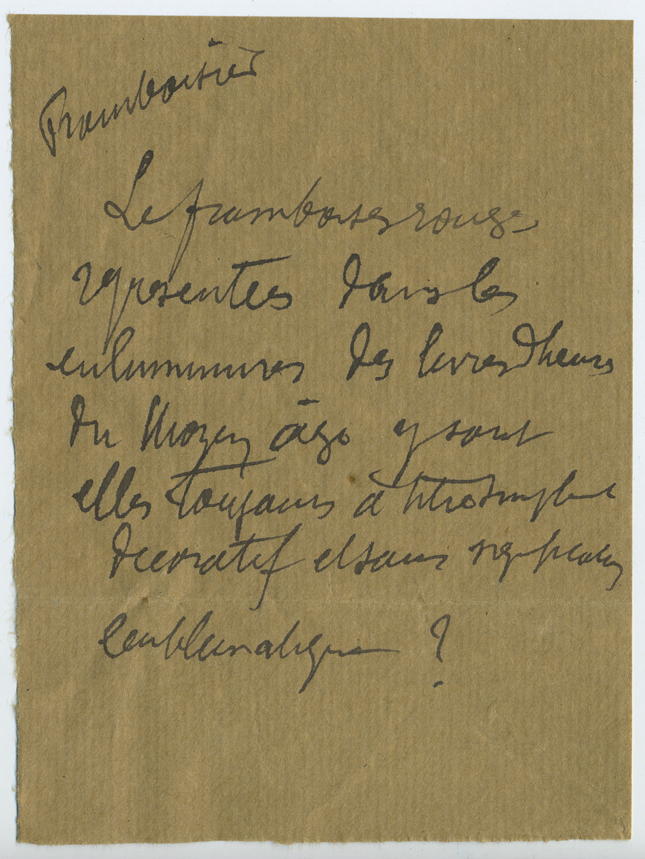 Framboisier
Le framboises rouges
représentées dans les
enluminures des livres d'heures
du Moyen âge y sont
elles toujours à titre simplement
décoratif et sans signification
emblématique ?